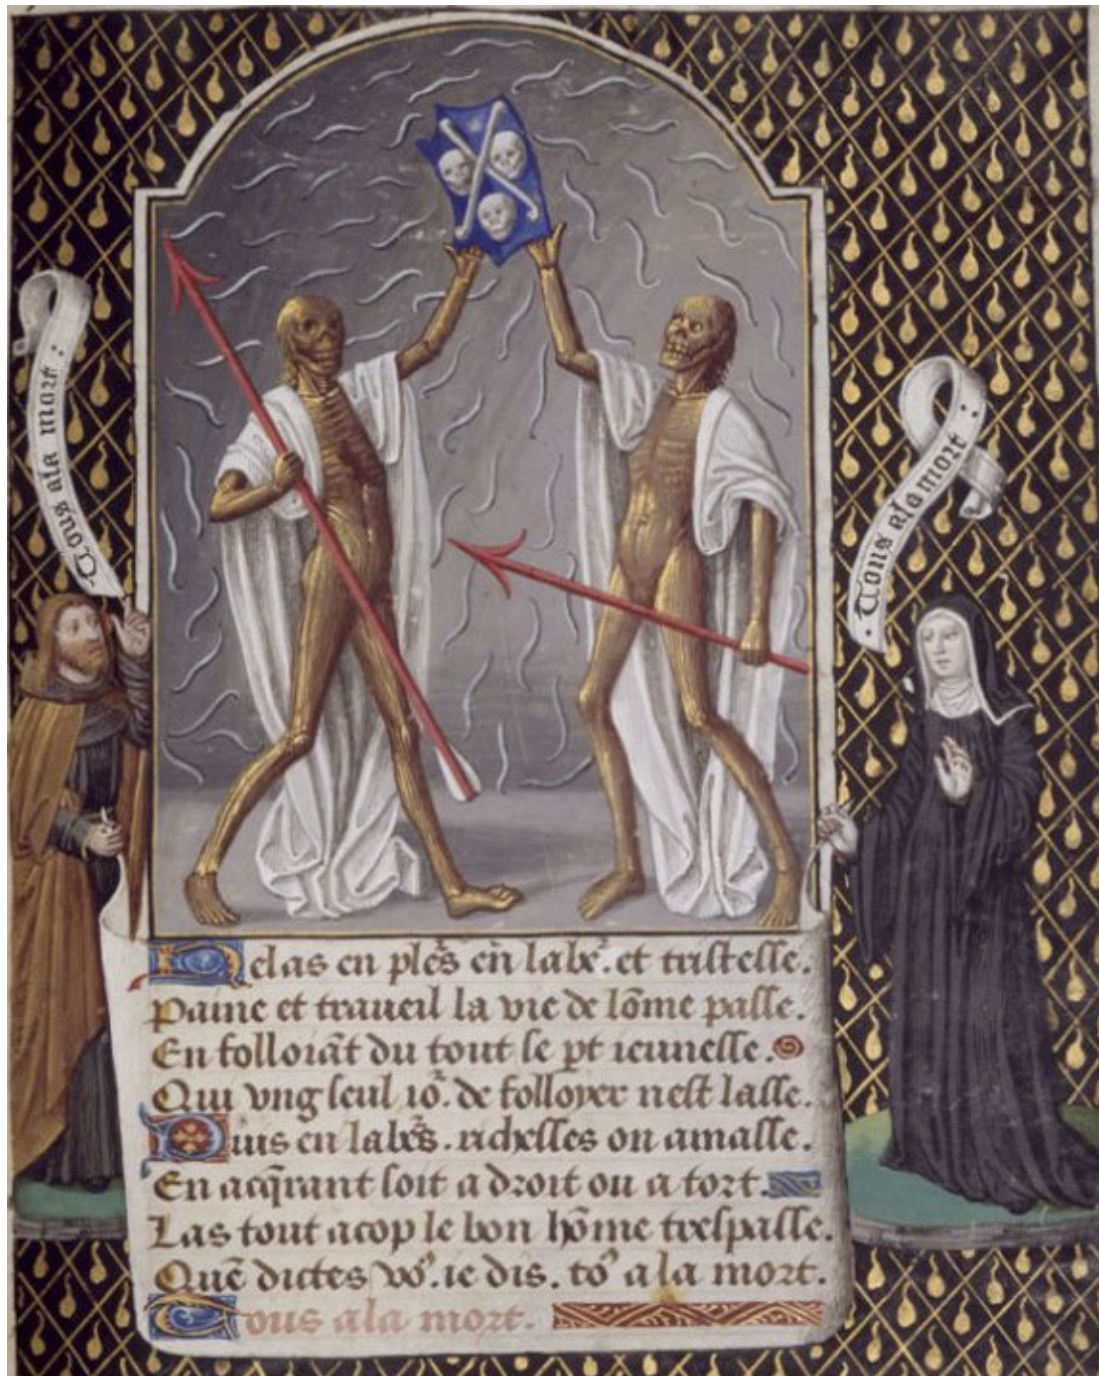 Tous ala mort :
Tous ala mort :
Helas en ple͛s en labr͛. et tristesse.
Paine et traueil la vie de lōme passe.
En folloiāt du tout se pt ieunesse.
Qui vng seul io͛. de folloyer nest lasse.
Puis en labr͛s. richesses on amasse.
En acq̄rant soit a droit ou a tort.
Las tout acop le bon hōme trespasse.
Que dictes vo᷒. ie dis. to᷒ ala mort.
Tous ala mort.